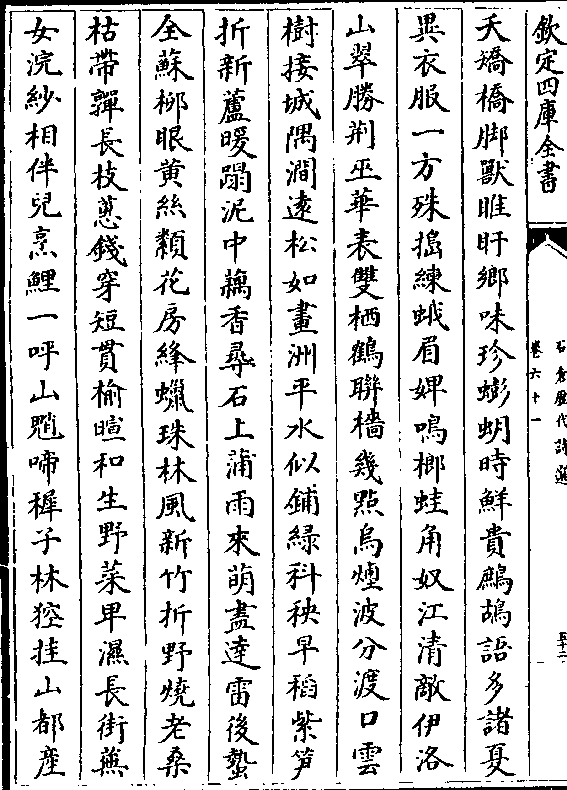 欽定四庫全書
夭矯橋脚獸睢盱鄉味珍蟛蜞時鮮貴鷓鴣語多諸夏
異衣服一方殊搗練蛾眉婢鳴榔蛙角奴江清敵伊洛
山翠勝荆巫華表雙栖鶴聯檣幾㸃烏煙波分渡口雲
樹接城隅澗遠松如畫洲平水似鋪緑科秧早稻紫笋
折新蘆暖蹋泥中藕香尋石上蒲雨來萌盡達雷後蟄
全蘇栁眼黄絲纇花房絳蠟珠林風新竹折野燒老桑
枯帶亸長枝蕙錢穿短貫榆暄和生野菜卑濕長街蕪
女浣紗相伴兒烹鯉一呼山魈啼稺子林狖挂山都産
石倉歷代詩選
卷六十一